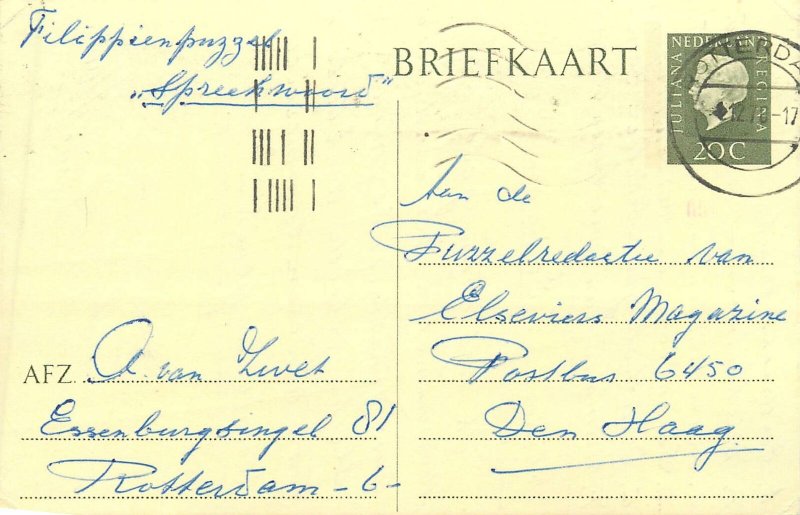 Filippienpuzzel
„Spreekwoord"
BRIEFKAART
NEDERLAND
JULIANA REGINA
20 C
ROTTERDA
12.70-17
Aan de
Puzzelredactie van
Elseviers Magazine
Postbus 6450
Den Haag
AFZ. A. van Zwet
Essenburgsingel 81
Rotterdam -6-